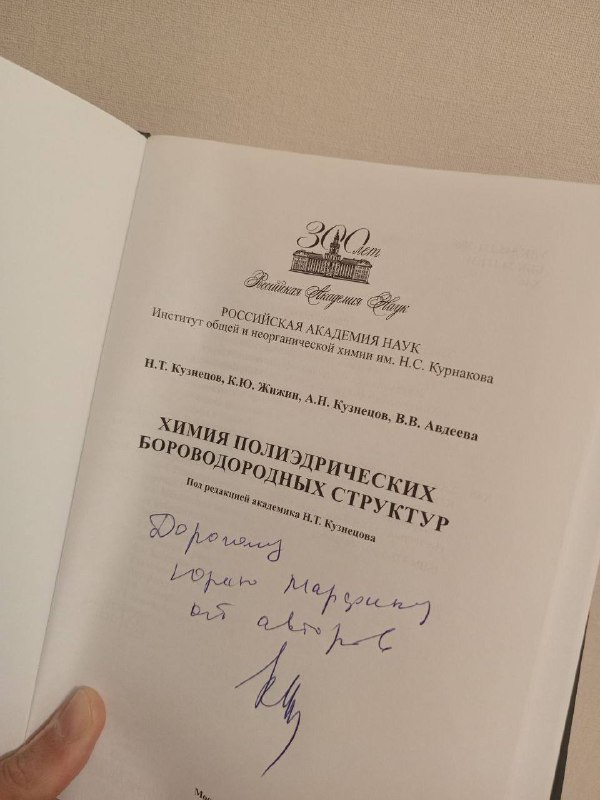 300 лет
Российская Академия Наук
РОССИЙСКАЯ АКАДЕМИЯ НАУК
Институт общей и неорганической химии им. Н.С. Курнакова
Н.Т. Кузнецов, К.Ю. Жижин, А.Н. Кузнецов, В.В. Авдеева
ХИМИЯ ПОЛИЭДРИЧЕСКИХ
БОРОВОДОРОДНЫХ СТРУКТУР
Под редакцией академика Н.Т. Кузнецова
Дорогому
Юрию Марфину
от авторов